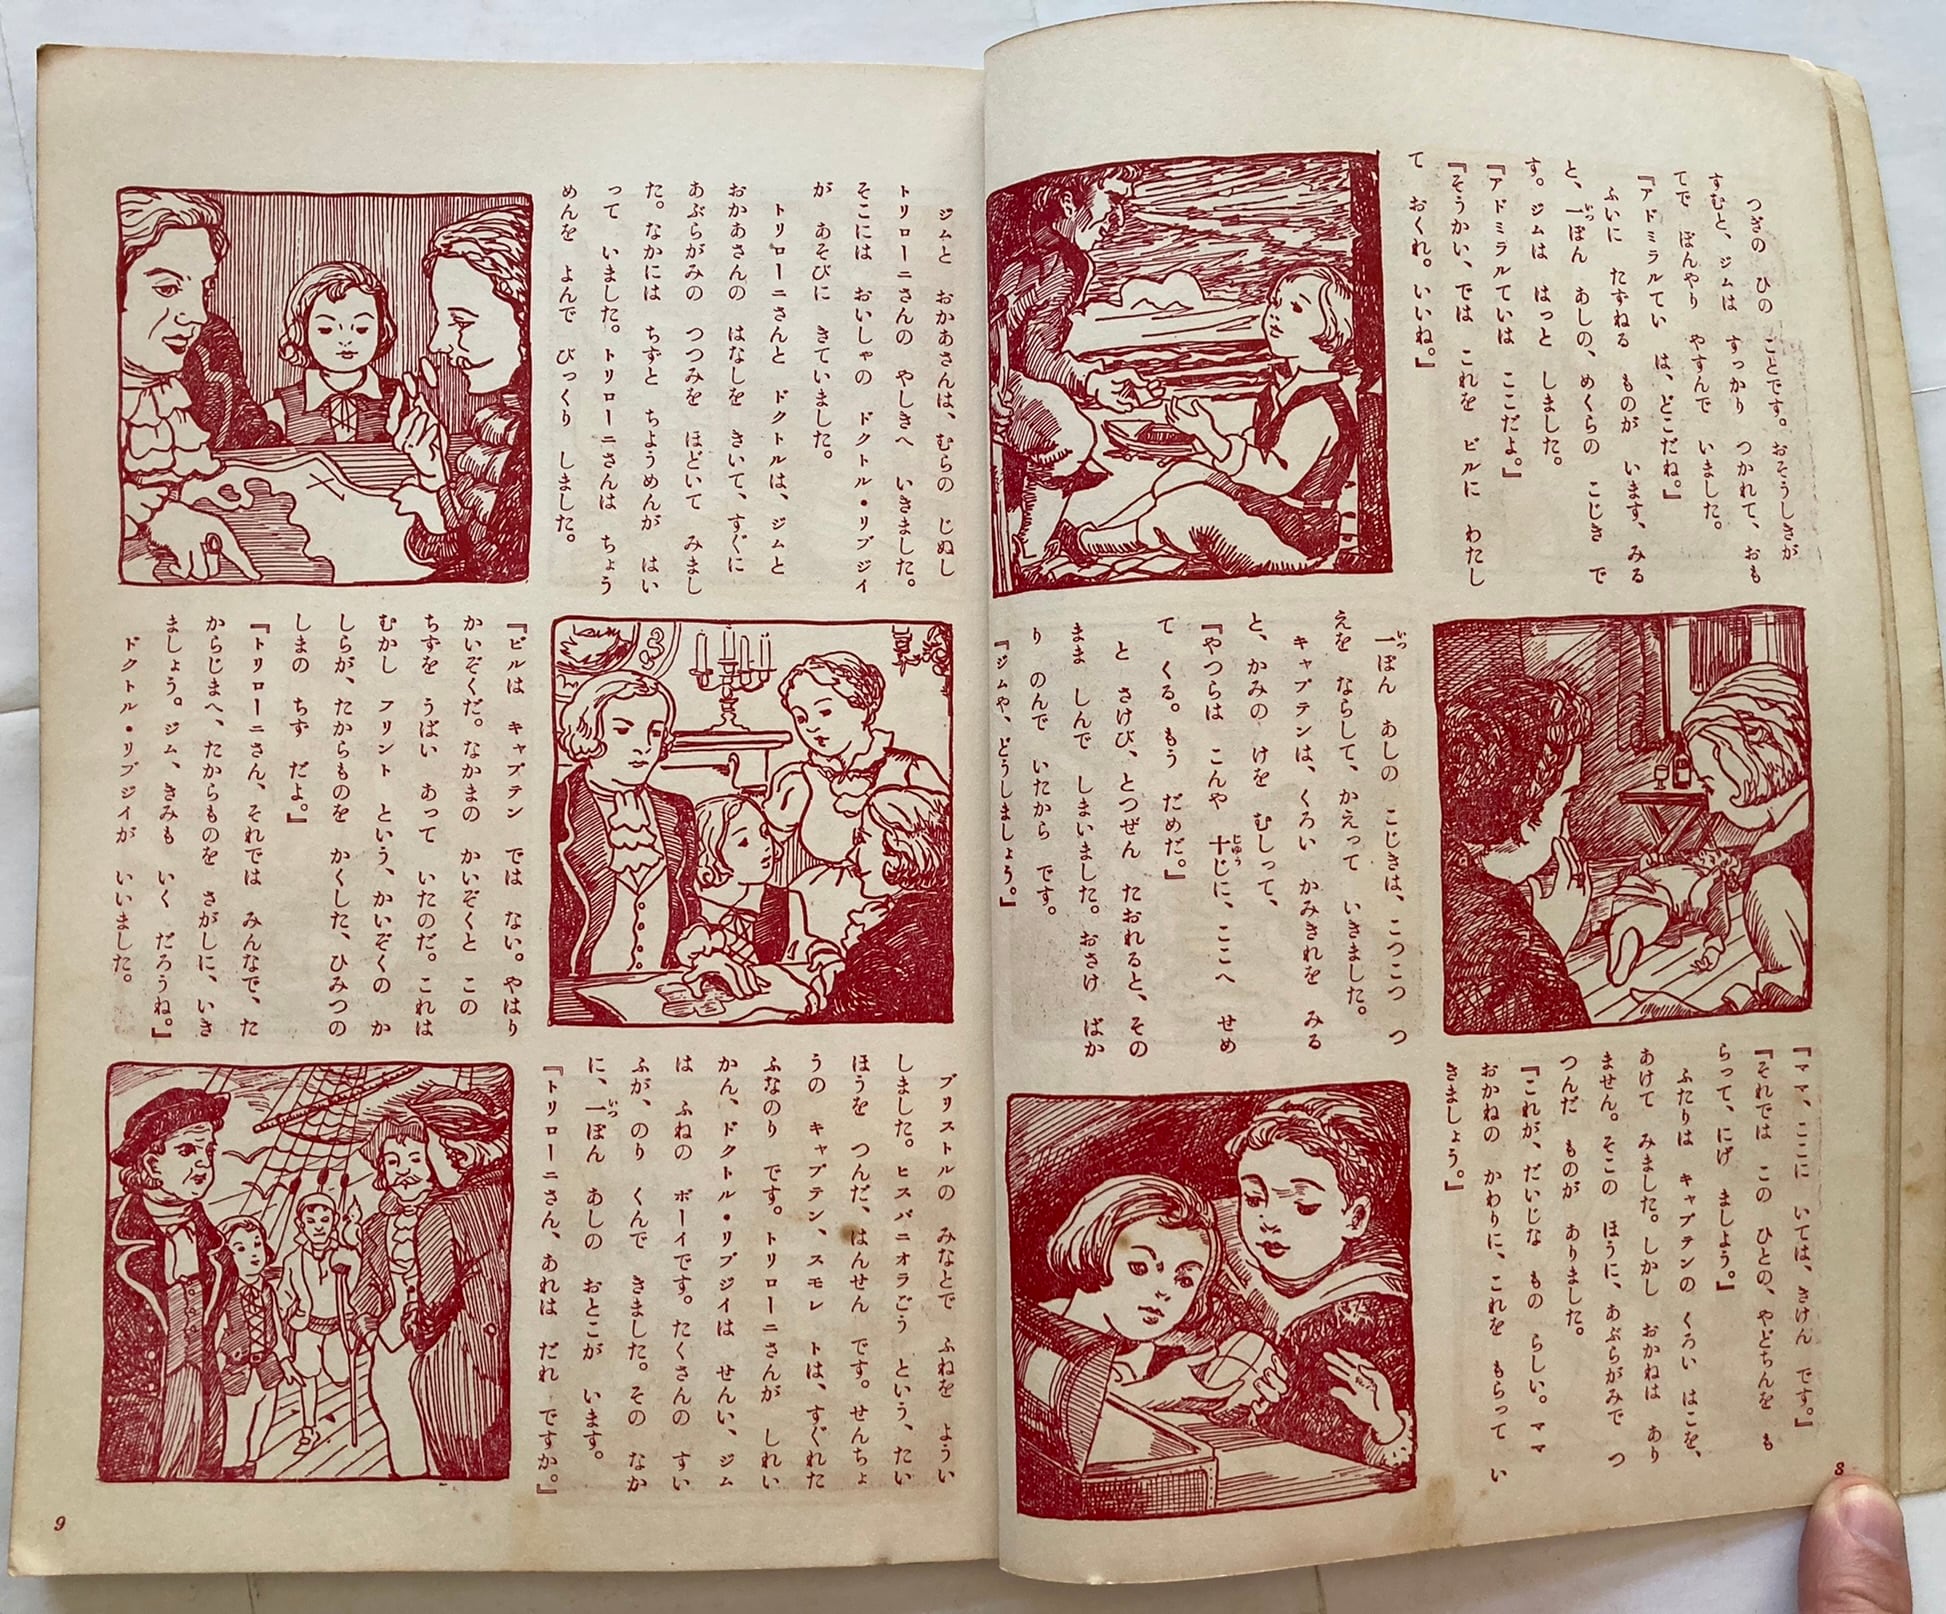 つぎの ひの ことです。おそうしきが
すむと、ジムは すっかり つかれて、おも
てで ぼんやり やすんで いました。
『アドミラルてい は、どこだね。』
ふいに たずねる ものが います、みる
と、一ぽん あしの、めくらの こじき で
す。ジムは はっと しました。
『アドミラルていは ここだよ。』
『そうかい、では これを ビルに わたし
て おくれ。いいね。』
一ぽん あしの こじきは、こつこつ つ
えを ならして、かえって いきました。
キャプテンは、くろい かみきれを みる
と、かみの けを むしって、
『やつらは こんや 十じに、ここへ せめ
て くる。もう だめだ。』
と さけび、とつぜん たおれると、その
まま しんで しまいました。おさけ ばか
り のんで いたから です。
『ジムや、どうしましょう。』
『ママ、ここに いては、きけん です。』
『それでは この ひとの、やどちんを も
らって、にげ ましよう。』
ふたりは キャプテンの くろい はこを、
あけて みました。しかし おかねは あり
ません。そこの ほうに、あぶらがみで つ
つんだ ものが ありました。
『これが、だいじな もの らしい。ママ
おかねの かわりに、これを もらって い
きましょう。』
8
ジムと おかあさんは、むらの じぬし
トリローニさんの やしきへ いきました。
そこには おいしゃの ドクトル・リブジイ
が あそびに きていました。
トリローニさんと ドクトルは、ジムと
おかあさんの はなしを きいて、すぐに
あぶらがみの つつみを ほどいて みまし
た。なかには ちずと ちようめんが はい
って いました。トリローニさんは ちょう
めんを よんで びっくり しました。
『ビルは キャプテン では ない。やはり
かいぞくだ。なかまの かいぞくと この
ちずを うばい あって いたのだ。これは
むかし フリント という、かいぞくの か
しらが、たからものを かくした、ひみつの
しまの ちず だよ。』
『トリローニさん、それでは みんなで、た
からじまへ、たからものを さがしに、いき
ましょう。ジム、きみも いく だろうね。』
ドクトル・リブジイが いいました。
ブリストルの みなとで ふねを ようい
しました。ヒスパニオラごう という、たい
ほうを つんだ、はんせん です。せんちょ
うの キャプテン、スモレ トは、すぐれた
ふなのり です。トリローニさんが しれい
かん、ドクトル・リブジイは せんい、ジム
は ふねの ボーイです。たくさんの すい
ふが、のり くんで きました。その なか
に、一ぽん あしの おとこが います。
『トリローニさん、あれは だれ ですか。』
9